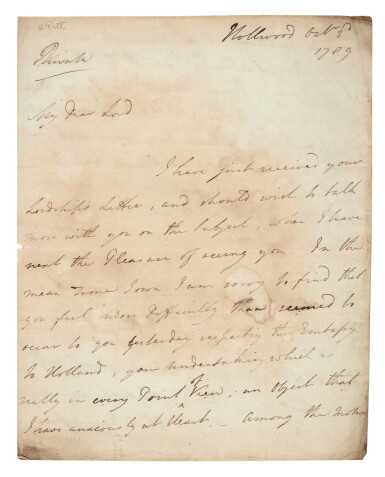 Hollwood Octr
1789
Private
My dear Lord
I have just received your
Lordship's Letter, and should wish to talk
more with you on the Subject, when I have
next the Pleasure of seeing you. In the
mean Time I own I am sorry to find that
you feel more Difficulty than seemed to
occur to you yesterday respecting the Embassy
to Holland, your undertaking which is
really in every Point of View, an Object that
I have anxiously at Heart. - Among the